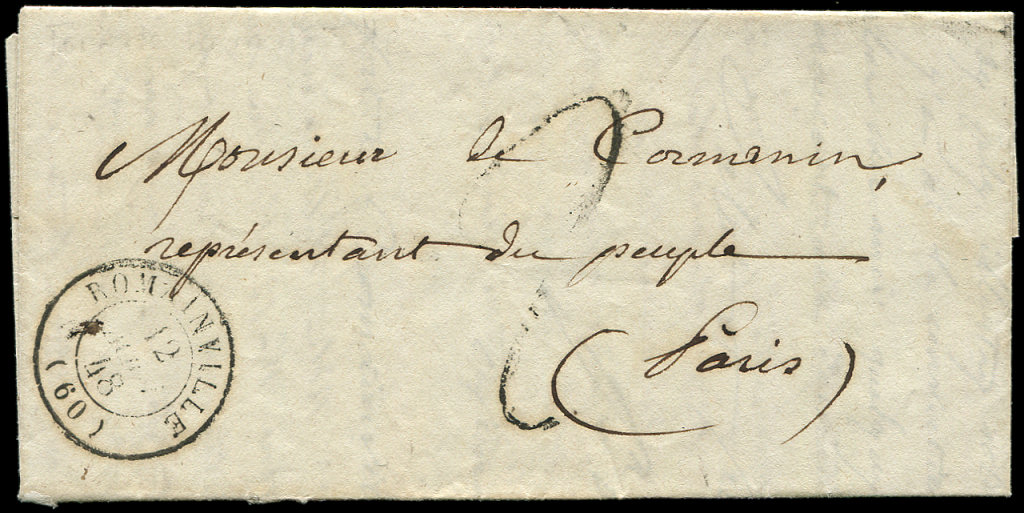 Monsieur de Cormenin,
représentant du peuple
(Paris)
ROMAINVILLE
12
48
(60)